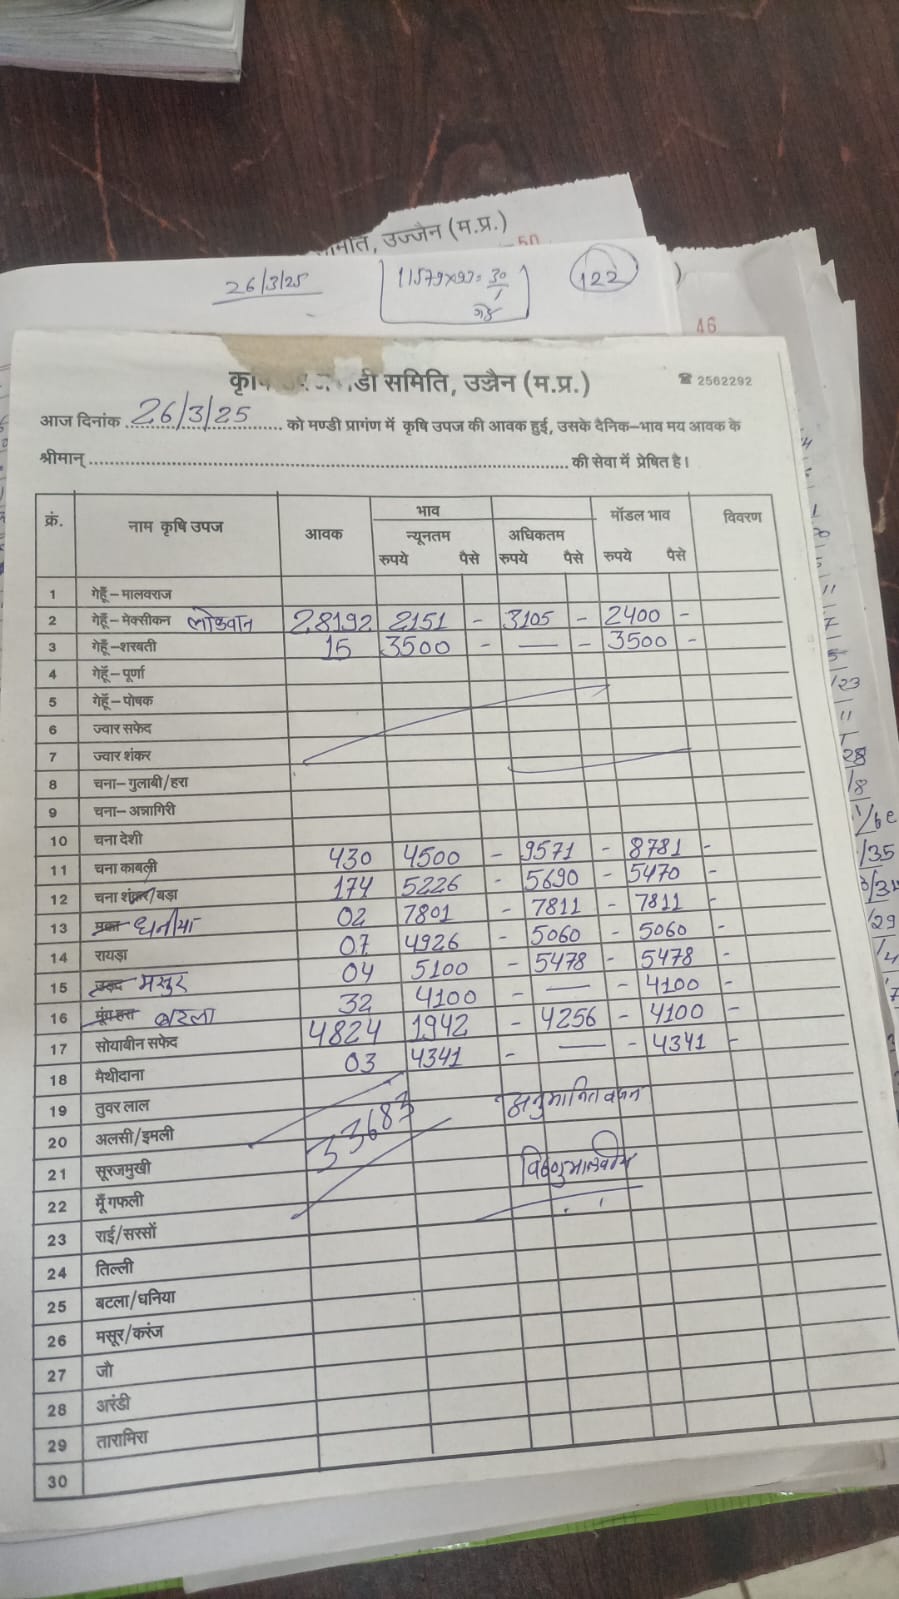 समिति, उज्जैन (म.प्र.)
50
26/3/25
122
46
डी समिति, उज्जैन (म.प्र.)
☎ 2562292
आज दिनांक 26/3/25 को मण्डी प्रागंण में कृषि उपज की आवक हुई, उसके दैनिक-भाव मय आवक के
श्रीमान् की सेवा में प्रेषित है।
क्रं. नाम कृषि उपज आवक भाव मॉडल भाव विवरण
न्यूनतम अधिकतम
रुपये पैसे रुपये पैसे रुपये पैसे
1 गेहूँ-मालवराज
2 गेहूँ-मेक्सीकन लोकवान 28192 2151 - 3105 - 2400 -
3 गेहूँ-शरबती 15 3500 - — - 3500 -
4 गेहूँ-पूर्णा
5 गेहूँ-पोषक
6 ज्वार सफेद
7 ज्वार शंकर
8 चना-गुलाबी/हरा
9 चना-अन्नागिरी
10 चना देशी
11 चना काबली 430 4500 - 9571 - 8781 -
12 चना शंकर/बड़ा 174 5226 - 5690 - 5470 -
13 मक्का धनीया 02 7801 - 7811 - 7811 -
14 रायड़ा 07 4926 - 5060 - 5060 -
15 उड़द मसुर 04 5100 - 5478 - 5478 -
16 मूंग हरा बटला 32 4100 - — - 4100 -
17 सोयाबीन सफेद 4824 1942 - 4256 - 4100 -
18 मैथीदाना 03 4341 - — - 4341 -
19 तुवर लाल अनुमानित वजन
20 अलसी/इमली 33683
21 सूरजमुखी
22 मूँगफली
23 राई/सरसों
24 तिल्ली
25 बटला/धनिया
26 मसूर/करंज
27 जौ
28 अरंडी
29 तारामिरा
30